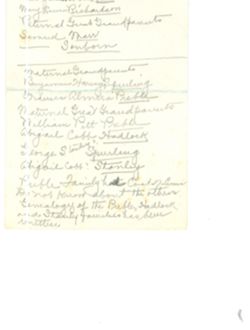 Mary ... Richardson
Paternal Great Grandparents
Samuel Marr
Sanborn
Maternal Grandparents
Benjamin Harvey Spurling
Frances Almira Preble
Maternal Great Grandparents
William Pitt Preble
Abigail Cobb Hadlock
George S Spurling
Abigail Cobb Stanley
Preble Family has Coat of Arms
Do not know about the others
Genealogy of the Preble, Hadlock
and Stanley families has been
written